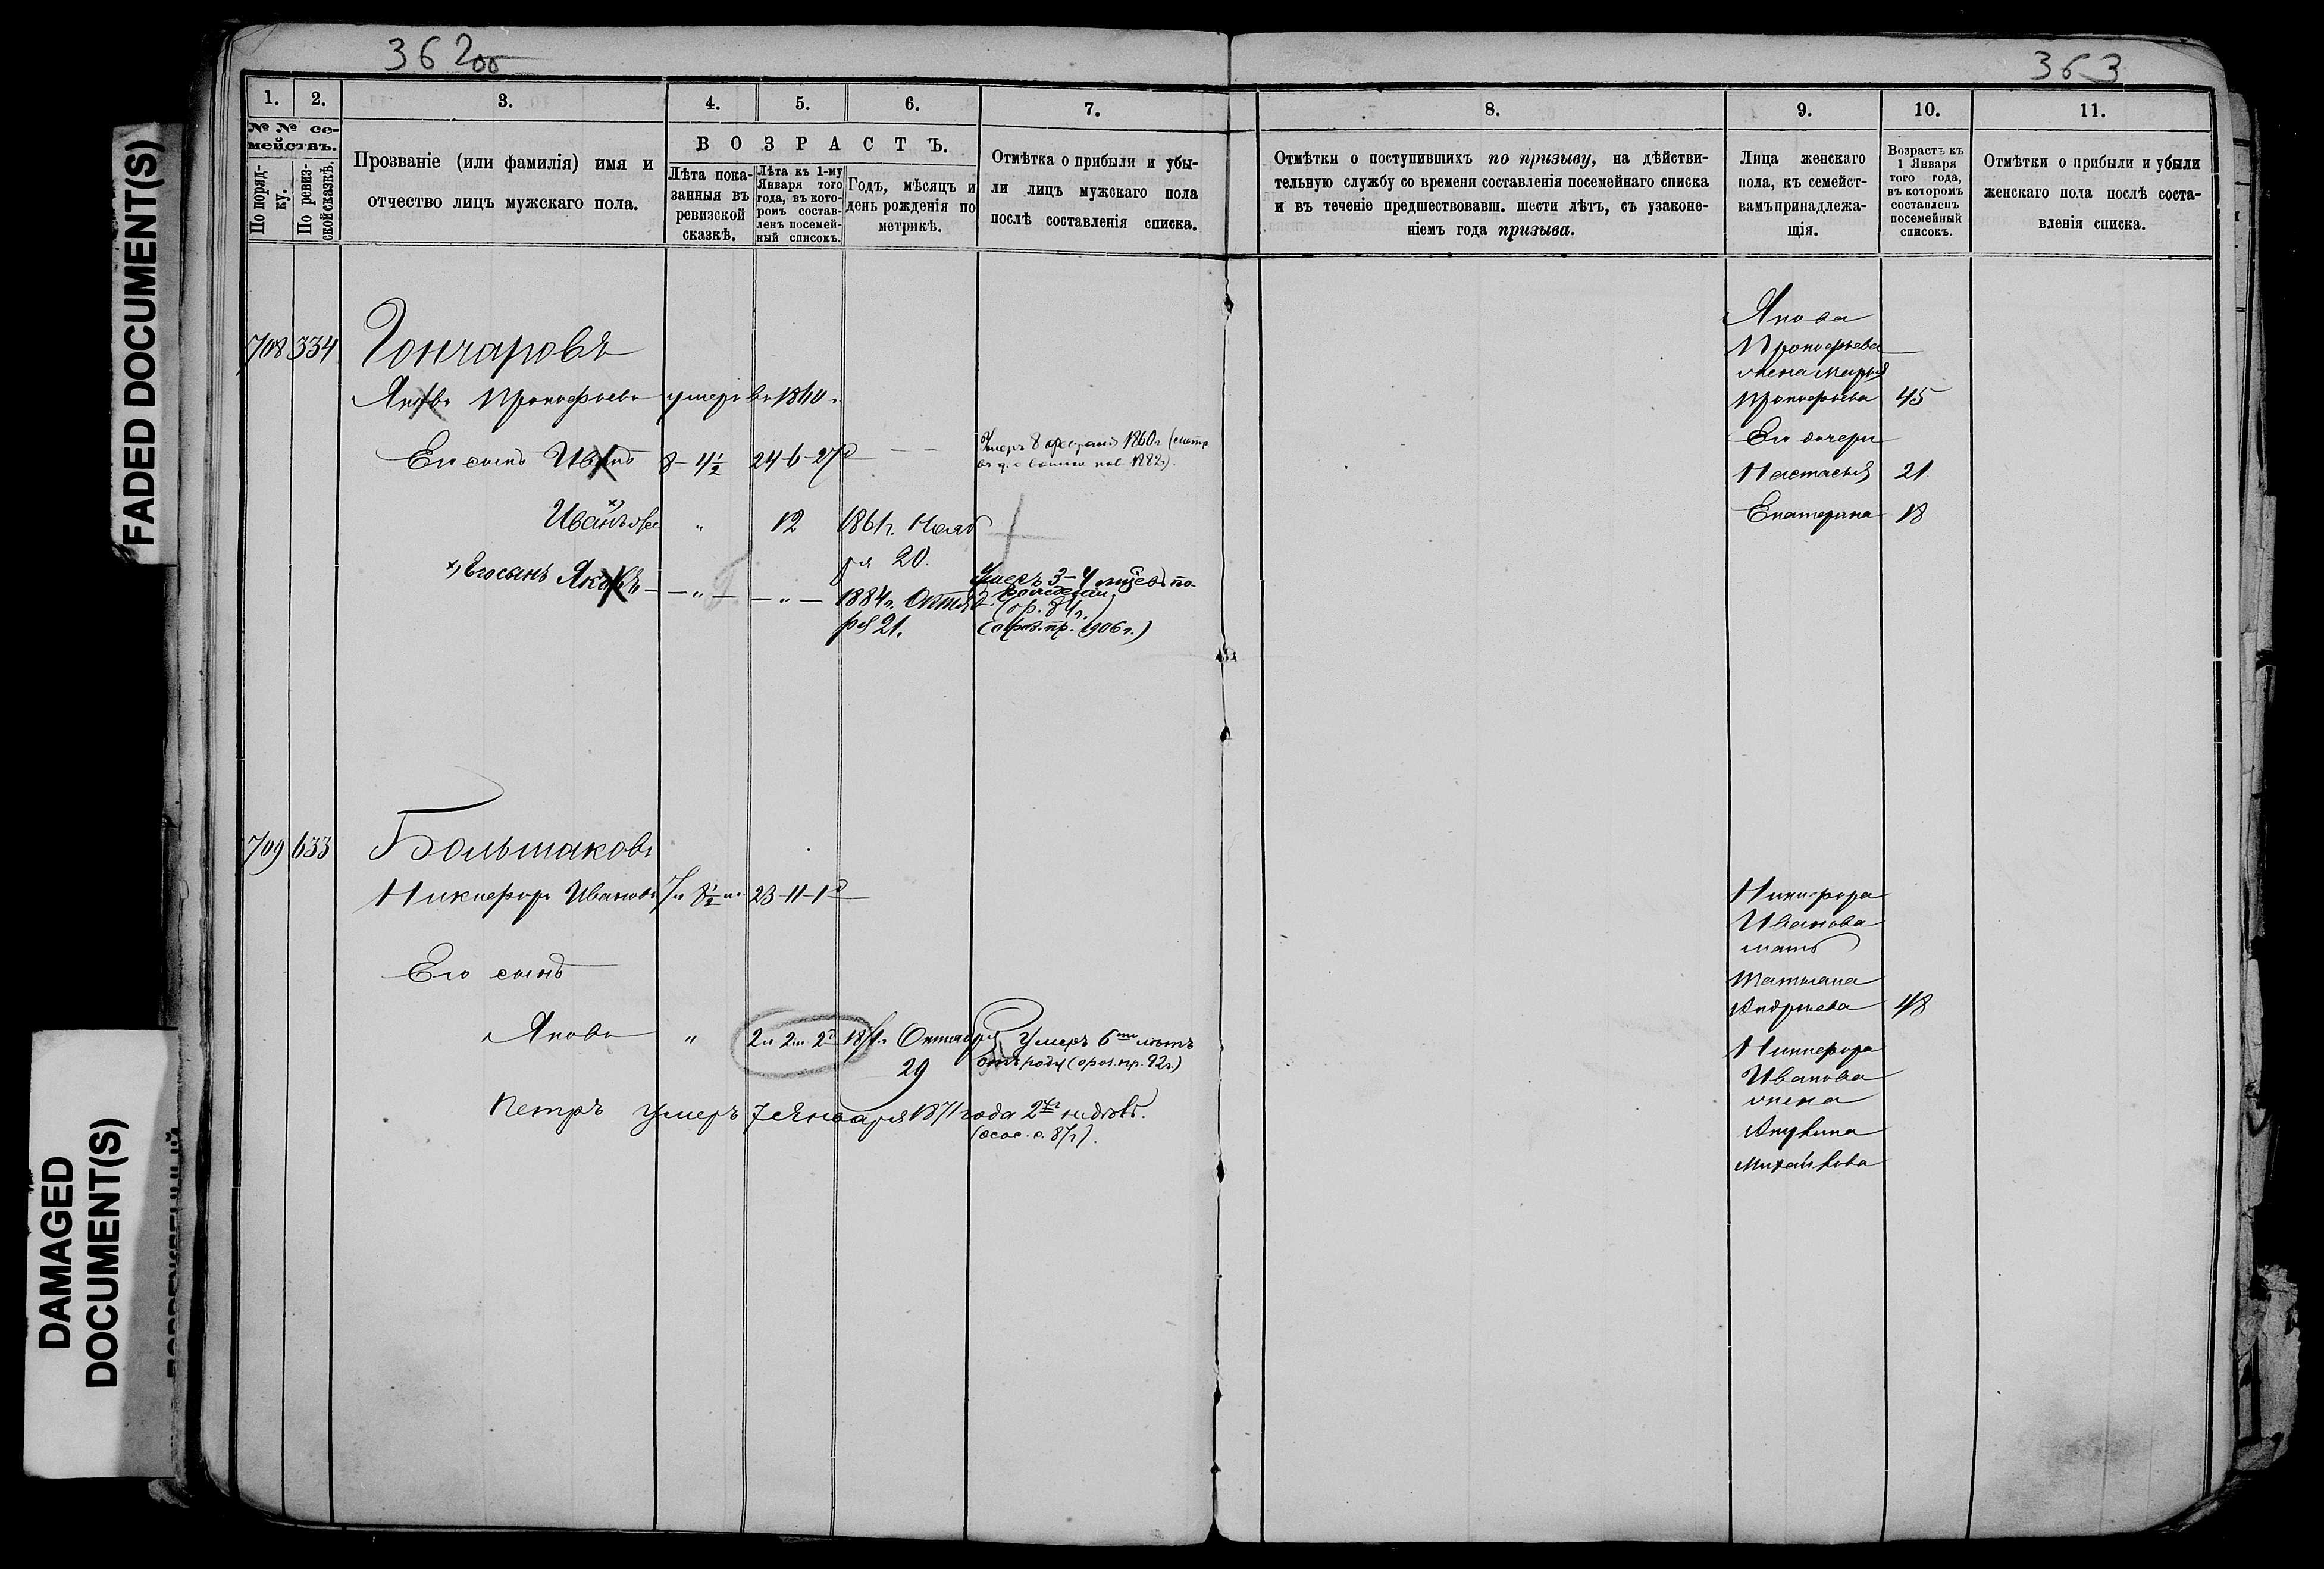 362 об
363
1.
2.
3.
4.
5.
6.
7.
8.
9.
10.
11.
№ № се-
мействъ.
По поряд-
ку.
По ревиз-
ской сказкѣ.
Прозваніе (или фамилія) имя и
отчество лицъ мужскаго пола.
ВОЗРАСТЪ.
Лѣта пока-
занныя въ
ревизской
сказкѣ.
Лѣта къ 1-му
Января того
года, въ кото-
ромъ состав-
ленъ посемей-
ный списокъ.
Годъ, мѣсяцъ и
день рожденія по
метрикѣ.
Отмѣтка о прибыли и убы-
ли лицъ мужскаго пола
послѣ составленія списка.
Отмѣтки о поступившихъ по призыву, на дѣйстви-
тельную службу со времени составленія посемейнаго списка
и въ теченіе предшествовавш. шести лѣтъ, съ узаконе-
ніемъ года призыва.
Лица женскаго
пола, къ семейст-
вамъ принадлежа-
щія.
Возрастъ къ
1 Января
того года,
въ которомъ
составленъ
посемейный
списокъ.
Отмѣтки о прибыли и убыли
женскаго пола послѣ соста-
вленія списка.
708 334 Гончаровъ
Яковъ Прокофьевъ умеръ въ 1860 г.
Его сынъ Иванъ 8-4½ 24-6-27д Умеръ 8 февраля 1860 г.
1882 г).
Иванъ х) 12 1861 г. Нояб
ря 20.
х) Его сынъ Яковъ — — " — — " — 1884 г. Октяб
ря 21.
Умеръ 3-4
(пр. 84 г.)
1906 г.)
Якова
Прокофьева
жена Марья
Прокофьева 45
Его дочери
Настасья 21
Екатерина 18
709 633 Большаковъ
Никифоръ Ивановъ 7 л 8½ м. 23-11-1д
Его сынъ
Яковъ " 2 л 2 м. 2д 1871 г. Октября
29
Умеръ 6ти лѣтъ
отъ роду 92 г.)
Петръ умеръ 7 Января 1871 года 2хъ недѣль.
87 г).
Никифора
Иванова
мать
Татьяна
Андреева 48
Никифора
Иванова
жена
Акулина
Михайлова
FADED DOCUMENT(S)
DAMAGED
DOCUMENT(S)